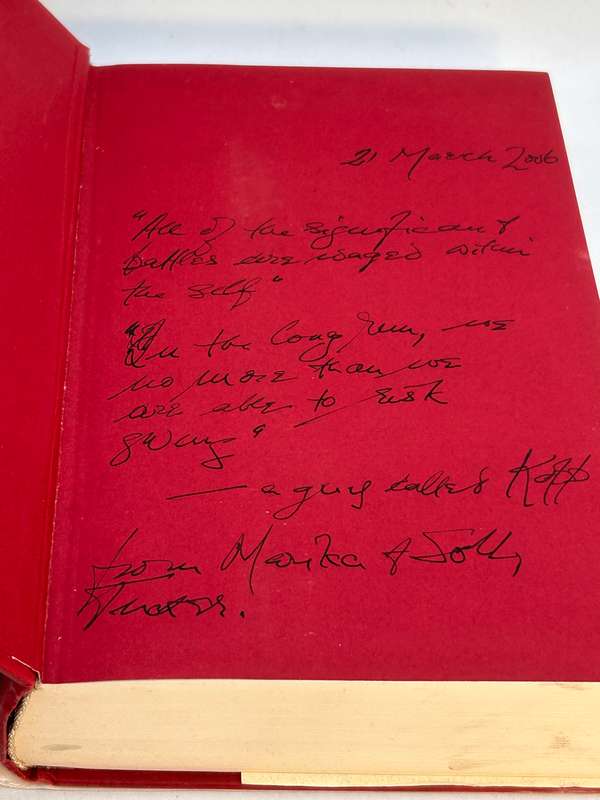 21 March 2006
"All of the significant
battles are waged within
the self"
"In the long run, we
no more than we
are able to risk
giving"
— a guy called Kopp
from Marika & Solly